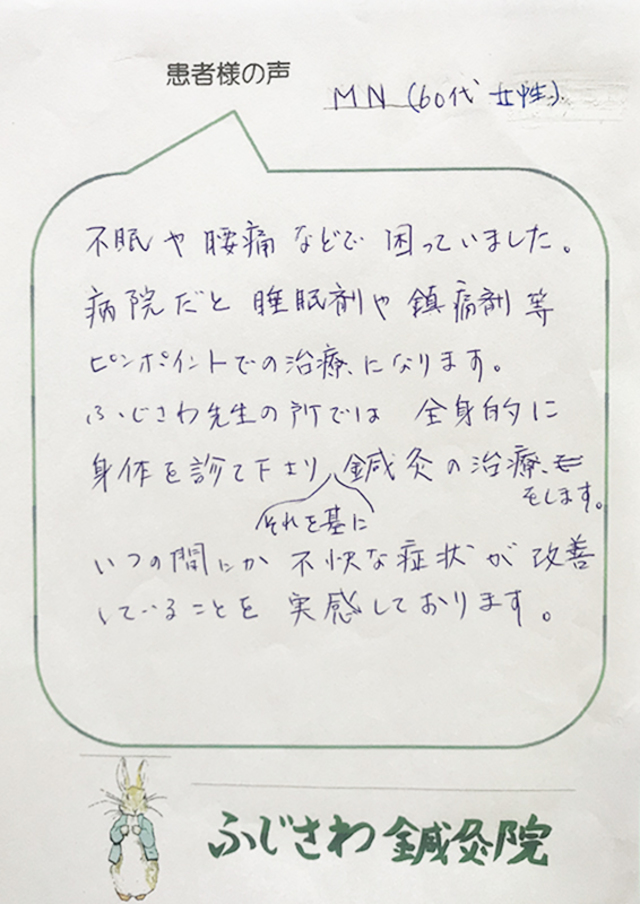 患者様の声
MN (60代 女性)
不眠や腰痛などで困っていました。
病院だと睡眠剤や鎮痛剤等
ピンポイントでの治療になります。
ふじさわ先生の所では 全身的に
身体を診て下さり 鍼灸の治療を
をします。
それを基に
いつの間にか 不快な症状が改善
していることを 実感しております。
ふじさわ鍼灸院